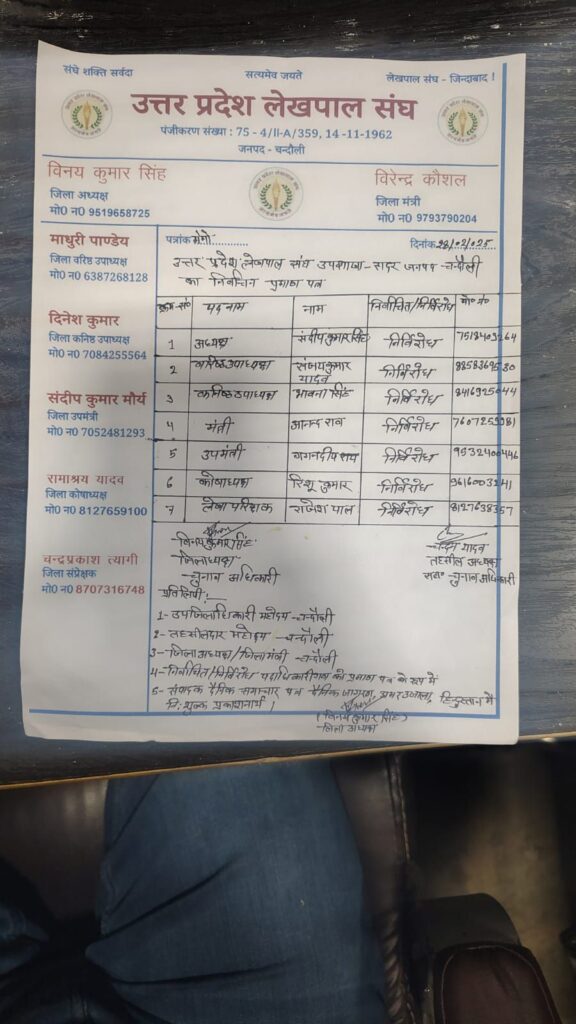 संघे शक्ति सर्वदा सत्यमेव जयते लेखपाल संघ - जिन्दाबाद !
उत्तर प्रदेश लेखपाल संघ
पंजीकरण संख्या : 75 - 4/II-A/359, 14 -11-1962
जनपद - चन्दौली
विनय कुमार सिंह
जिला अध्यक्ष
मो0 न0 9519658725
विरेन्द्र कौशल
जिला मंत्री
मो0 न0 9793790204
माधुरी पाण्डेय
जिला वरिष्ठ उपाध्यक्ष
मो0 न0 6387268128
दिनेश कुमार
जिला कनिष्ठ उपाध्यक्ष
मो0 न0 7084255564
संदीप कुमार मौर्य
जिला उपमंत्री
मो0 न0 7052481293
रामाश्रय यादव
जिला कोषाध्यक्ष
मो0 न0 8127659100
चन्द्रप्रकाश त्यागी
जिला संप्रेक्षक
मो0 न0 8707316748
पत्रांक मेमो दिनांक 28/02/025
उत्तर प्रदेश लेखपाल संघ उपशाखा - सदर जनपद - चन्दौली
का निर्वाचन प्रमाण पत्र
क्रम-सं० पदनाम नाम निर्वाचित/निर्विरोध मो० नं०
1 अध्यक्ष संदीप कुमार सिंह निर्विरोध
2 वरिष्ठ उपाध्यक्ष संजय कुमार यादव निर्विरोध
3 कनिष्ठ उपाध्यक्ष भावना सिंह निर्विरोध
4 मंत्री आनन्द राव निर्विरोध
5 उपमंत्री गगनदीप राय निर्विरोध
6 कोषाध्यक्ष रिशू कुमार निर्विरोध
7 लेखा परिक्षक राजेश पाल निर्विरोध 8127638357
विनय कुमार सिंह
जिलाध्यक्ष
चुनाव अधिकारी
यादव
तहसील अध्यक्ष
सहा० चुनाव अधिकारी
प्रतिलिपी :-
1- उपजिलाधिकारी महोदय - चन्दौली
2- तहसीलदार महोदय - चन्दौली
3- जिलाअध्यक्ष/जिलामंत्री - चन्दौली
4- निर्वाचित/निर्विरोध पदाधिकारीगण को प्रमाण पत्र के रूप में
5- संपादक दैनिक समाचार पत्र दैनिक जागरण, अमर उजाला, हिन्दुस्तान में
नि:शुल्क प्रकाशनार्थ ।
(विनय कुमार सिंह)
जिला अध्यक्ष